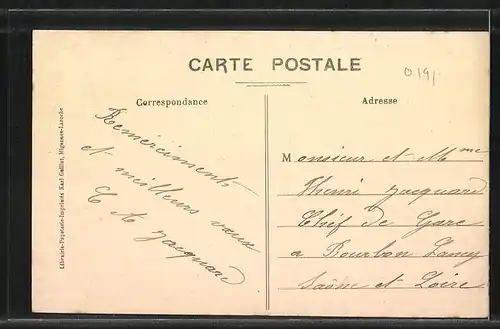 CARTE POSTALE
0191
Correspondance
Adresse
Remerciements
et meilleurs vœux
C A Jacquard
Monsieur et Mme
Henri Jacquard
Chef de Gare
a Bourbon Lancy
Saône et Loire
Librairie-Papeterie-Imprimerie Karl Guillot, Migennes-Laroche